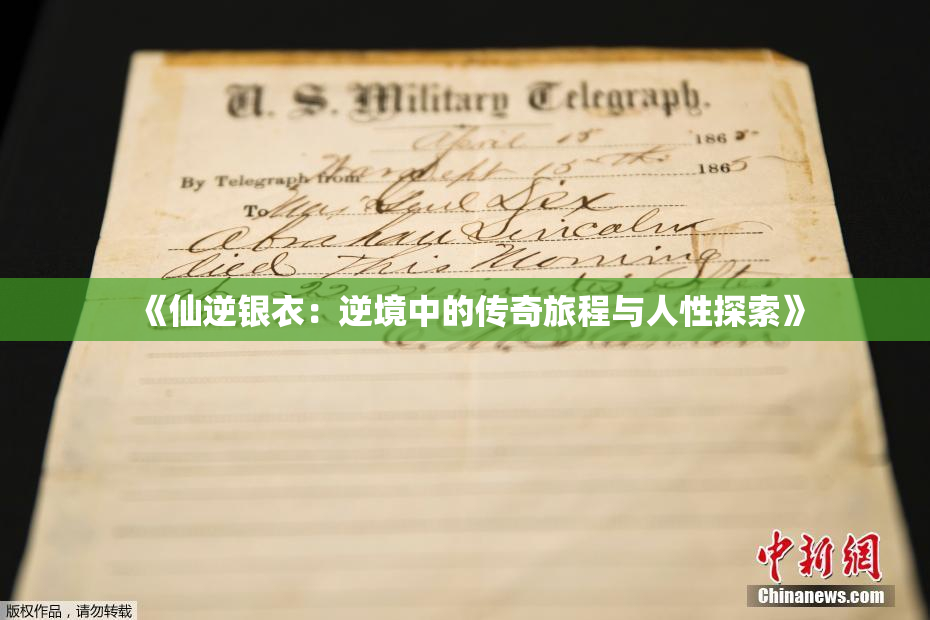 U. S. Military Telegraph.
April 15 1865
By Telegraph from War Dept 15th 1865
To Maj Genl Dix
Abraham Lincoln
died This Morning
at 22 minutes after
《仙逆银衣：逆境中的传奇旅程与人性探索》
E. M. Stanton
中新网
Chinanews.com
版权作品，请勿转载